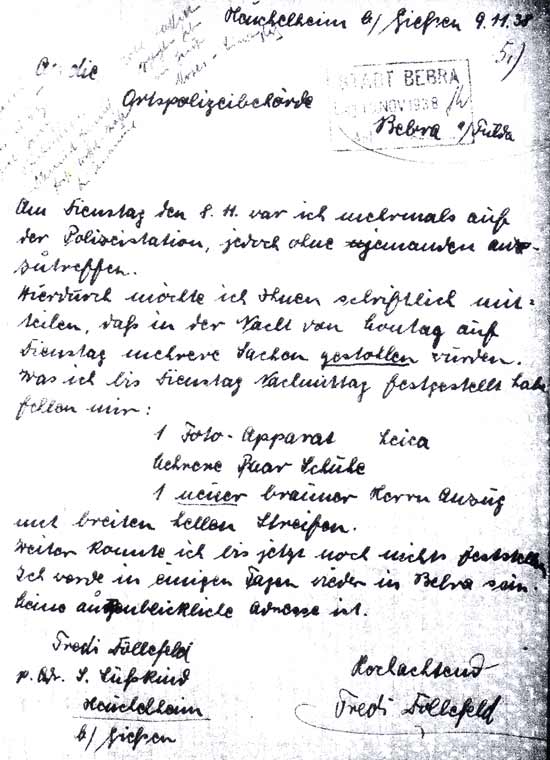 Heuchelheim b/ Gießen 9.11.38
5.)
An die
Ortspolizeibehörde
STADT BEBRA
NOV 1938
Bebra a/Fulda
Am Dienstag den 8.11. war ich mehrmals auf
der Polizeistation, jedoch ohne jemanden an-
zutreffen.
Hierdurch möchte ich Ihnen schriftlich mit-
teilen, daß in der Nacht von Montag auf
Dienstag mehrere Sachen gestohlen wurden.
Was ich bis Dienstag Nachmittag festgestellt habe
fehlen mir:
1 Foto-Apparat Leica
Mehrere Paar Schuhe
1 neuer brauner Herrn Anzug
mit breiten hellen Streifen.
Weiter konnte ich bis jetzt noch nichts feststellen
Ich werde in einigen Tagen wieder in Bebra sein.
Meine augenblickliche Adresse ist.
Fredi Döllefeld
p. Adr. S. Süßkind
Heuchelheim
b/ Gießen
Hochachtend
Fredi Döllefeld